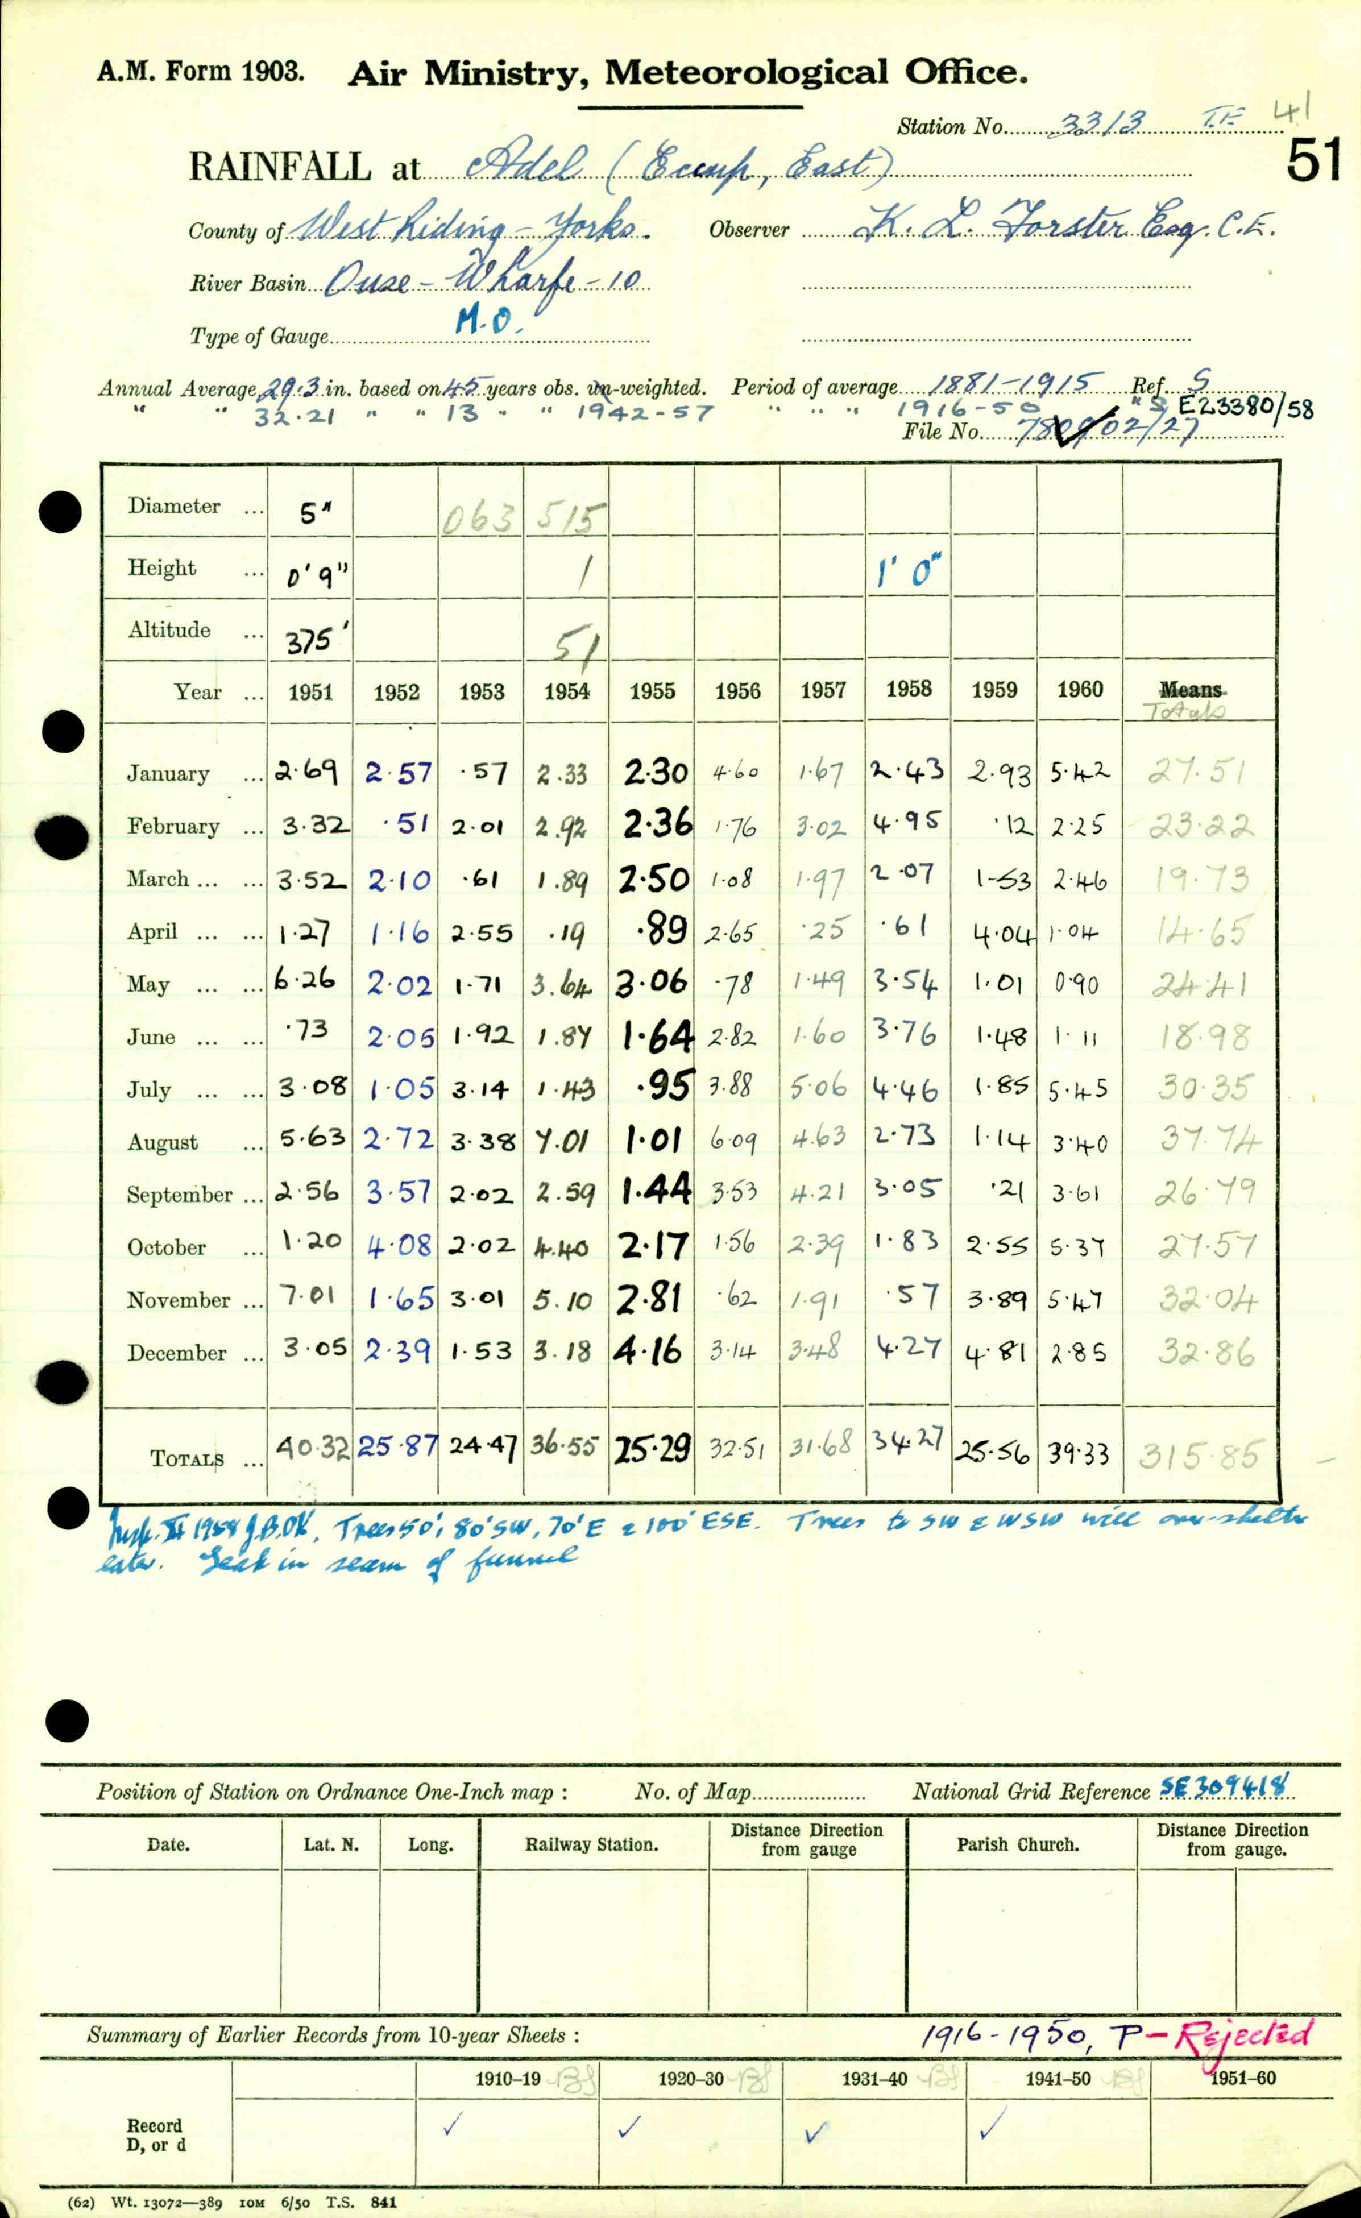 A.M. Form 1903. Air Ministry, Meteorological Office.
Station No. 3313 I.F. 41
51
RAINFALL at Adel (Eccup, East)
County of West Riding - Yorks. Observer K. L. Forster Esq. C.E.
River Basin Ouse - Wharfe - 10
Type of Gauge M.O.
Annual Average 29.3 in. based on 45 years obs. un-weighted. Period of average 1881-1915 Ref. S
" " 32.21 " " 13 " " 1942-57 " " " 1916-50 " S E23380/58
File No. 780902/27
Diameter ... 5" 063 515
Height ... 0' 9" 1 1' 0"
Altitude ... 375' 51
Year ... 1951 1952 1953 1954 1955 1956 1957 1958 1959 1960 Means
Totals
January ... 2.69 2.57 .57 2.33 2.30 4.60 1.67 2.43 2.93 5.42 27.51
February ... 3.32 .51 2.01 2.92 2.36 1.76 3.02 4.95 .12 2.25 23.22
March ... ... 3.52 2.10 .61 1.89 2.50 1.08 1.97 2.07 1.53 2.46 19.73
April ... ... 1.27 1.16 2.55 .19 .89 2.65 .25 .61 4.04 1.04 14.65
May ... ... 6.26 2.02 1.71 3.64 3.06 .78 1.49 3.54 1.01 0.90 24.41
June ... ... .73 2.05 1.92 1.87 1.64 2.82 1.60 3.76 1.48 1.11 18.98
July ... ... 3.08 1.05 3.14 1.43 .95 3.88 5.06 4.46 1.85 5.45 30.35
August ... 5.63 2.72 3.38 7.01 1.01 6.09 4.63 2.73 1.14 3.40 37.74
September ... 2.56 3.57 2.02 2.59 1.44 3.53 4.21 3.05 .21 3.61 26.79
October ... 1.20 4.08 2.02 4.40 2.17 1.56 2.39 1.83 2.55 5.37 27.57
November ... 7.01 1.65 3.01 5.10 2.81 .62 1.91 .57 3.89 5.47 32.04
December ... 3.05 2.39 1.53 3.18 4.16 3.14 3.48 4.27 4.81 2.85 32.86
TOTALS ... 40.32 25.87 24.47 36.55 25.29 32.51 31.68 34.27 25.56 39.33 315.85
Insp. XI 1958 J.B. OK. Trees 50', 80' SW, 70' E & 100' ESE. Trees to SW & WSW will over-shelter
later. Leak in seam of funnel
Position of Station on Ordnance One-Inch map : No. of Map National Grid Reference SE 309418
Date. Lat. N. Long. Railway Station. Distance from gauge Direction Parish Church. Distance from gauge. Direction
Summary of Earlier Records from 10-year Sheets : 1916-1950, P - Rejected
1910–19 1920–30 1931–40 1941–50 1951–60
Record ✓ ✓ ✓ ✓
D, or d
(62) Wt. 13072—389 10M 6/50 T.S. 841